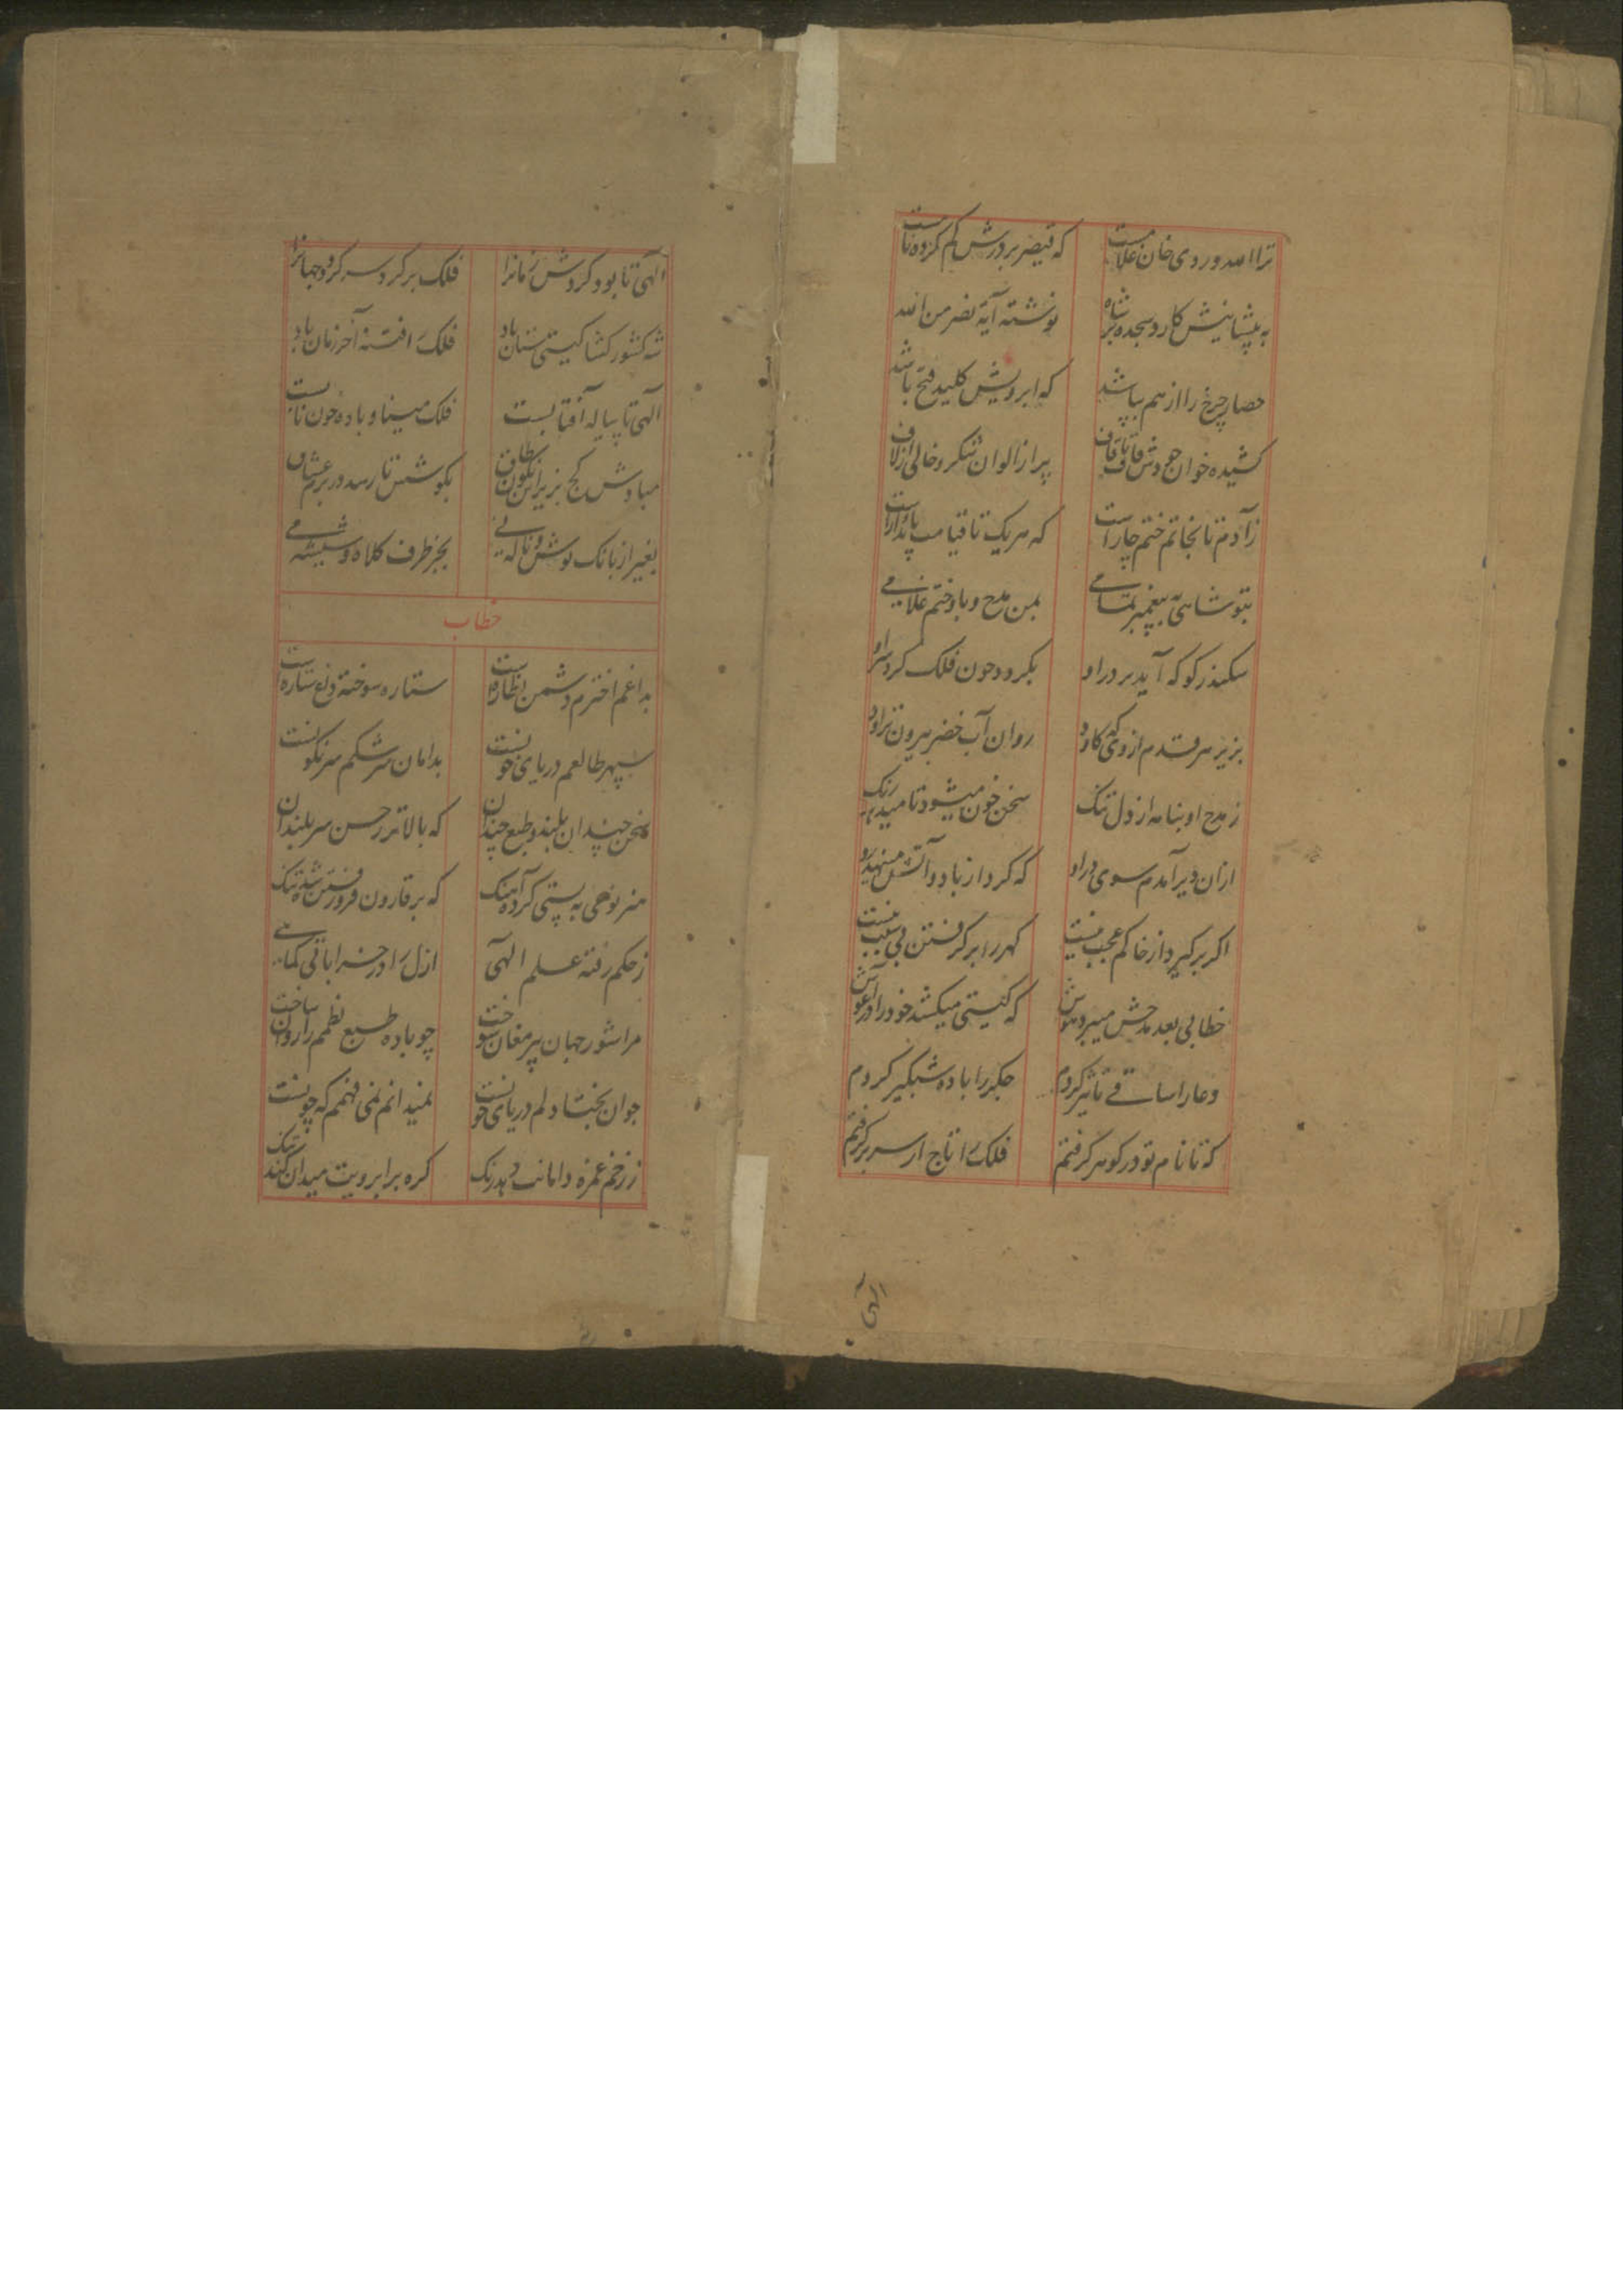 ترا الله وردی خان غلامست که قیصر بر درش کم کرده نامست
به پیشانیش کارد سجده بر شاه نوشته آیهٔ نصر من الله
حصار چرخ را از هم بپاشد که ابرویش کلید فتح باشد
کشیده خوان جودش قاف تا قاف پر از الوان شکر و خالی از لاف
ز آدم تا بخاتم ختم چارست که هریک تا قیامت پایدارست
بتو شاهی به پیغمبر تمامی بمن مدح و باو ختم غلامی
سکندر کو که آید بر در او بگردد چون فلک گرد سر او
بزیر هر قدم از وی که کاود روان آب خضر بیرون تراود
ز مدح او بنامه از دل تنگ سخن خون میشود تا میدهد رنگ
ازان دیر آمدم سوی در او که گرد از باد و آتش
اگر برگیرد از خاکم عجب نیست گهر را برگرفتن بی سبب نیست
خطابی بعد مدحش میبرد هوش که گیتی میکشد خود را در آغوش
دعا را ساقی تاثیر کردم جگر را باده شبگیر کردم
که تا نام تو در گوهر گرفتم فلک را تاج از سر برگرفتم
الهی
الهی تا بود گردش زمانرا فلک بر گرد سر گردد جهانرا
شه کشور کشا گیتی ستان باد فلک را فتنه آخر زمان باد
الهی تا پیاله آفتابست فلک مینا و باده خون نابست
مبادش کج بزیر این نگون طاق بگوشش تا رسد در بزم عشاق
بغیر از بانک نوش و ناله نی بجز طرف کلاه و شیشه می
خطاب
بداغم اخترم دشمن نظاره است ستاره سوخته داغ ستاره است
سپهر طالعم دریای خونست بدامان سرشکم سرنگونست
سخن چندان بلند و طبع چندان که بالاتر ز حسن سربلندان
هنر نوعی به پستی کرده آهنگ که بر قارون فرو رفتن شده تنگ
ز حکم رفته علم الهی ازل را در خراباتی
مرا شور جهان پیر مغان سوخت چو باده طبع نظمم را روان ساخت
جوان بختا دلم دریای خونست نمیدانم نمی فهمم که چونست
ز زخم غمزه دامانت دهد رنگ گره بر ابرویت میدان کند تنگ